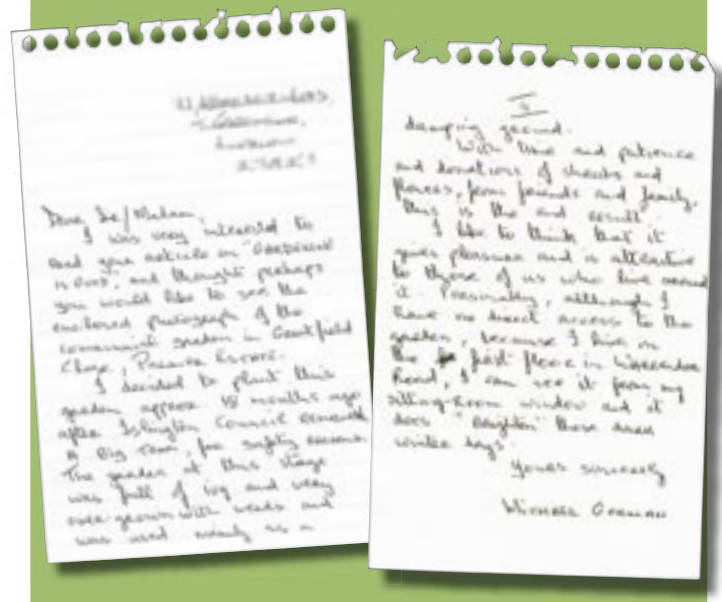 Dear Sir/Madam,
I was very interested to
read your article on "GARDENING
and thought perhaps
you would like to see the
enclosed photograph of the
communal garden in
Close,
I decided to plant this
garden approx 18 months ago
after Islington Council removed
a Big Tree, for safety reasons.
The garden at this stage
was full of ivy and very
over-grown with weeds and
was used mainly as a
dumping ground.
With time and patience
and donations of shrubs and
flowers, from friends and family,
this is the end result.
I like to think that it
gives pleasure and is attractive
to those of us who live around
it. Personally, although I
have no direct access to the
garden, because I live on
the first floor in
Road, I can see it from my
sitting-room window and it
does "brighten" those
winter days.
Yours sincerely